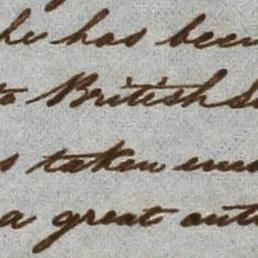 he has been
to British
taken
a great